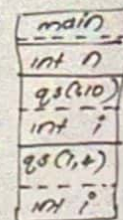 main
int n
qs(1,10)
int i
qs(1,4)
int i